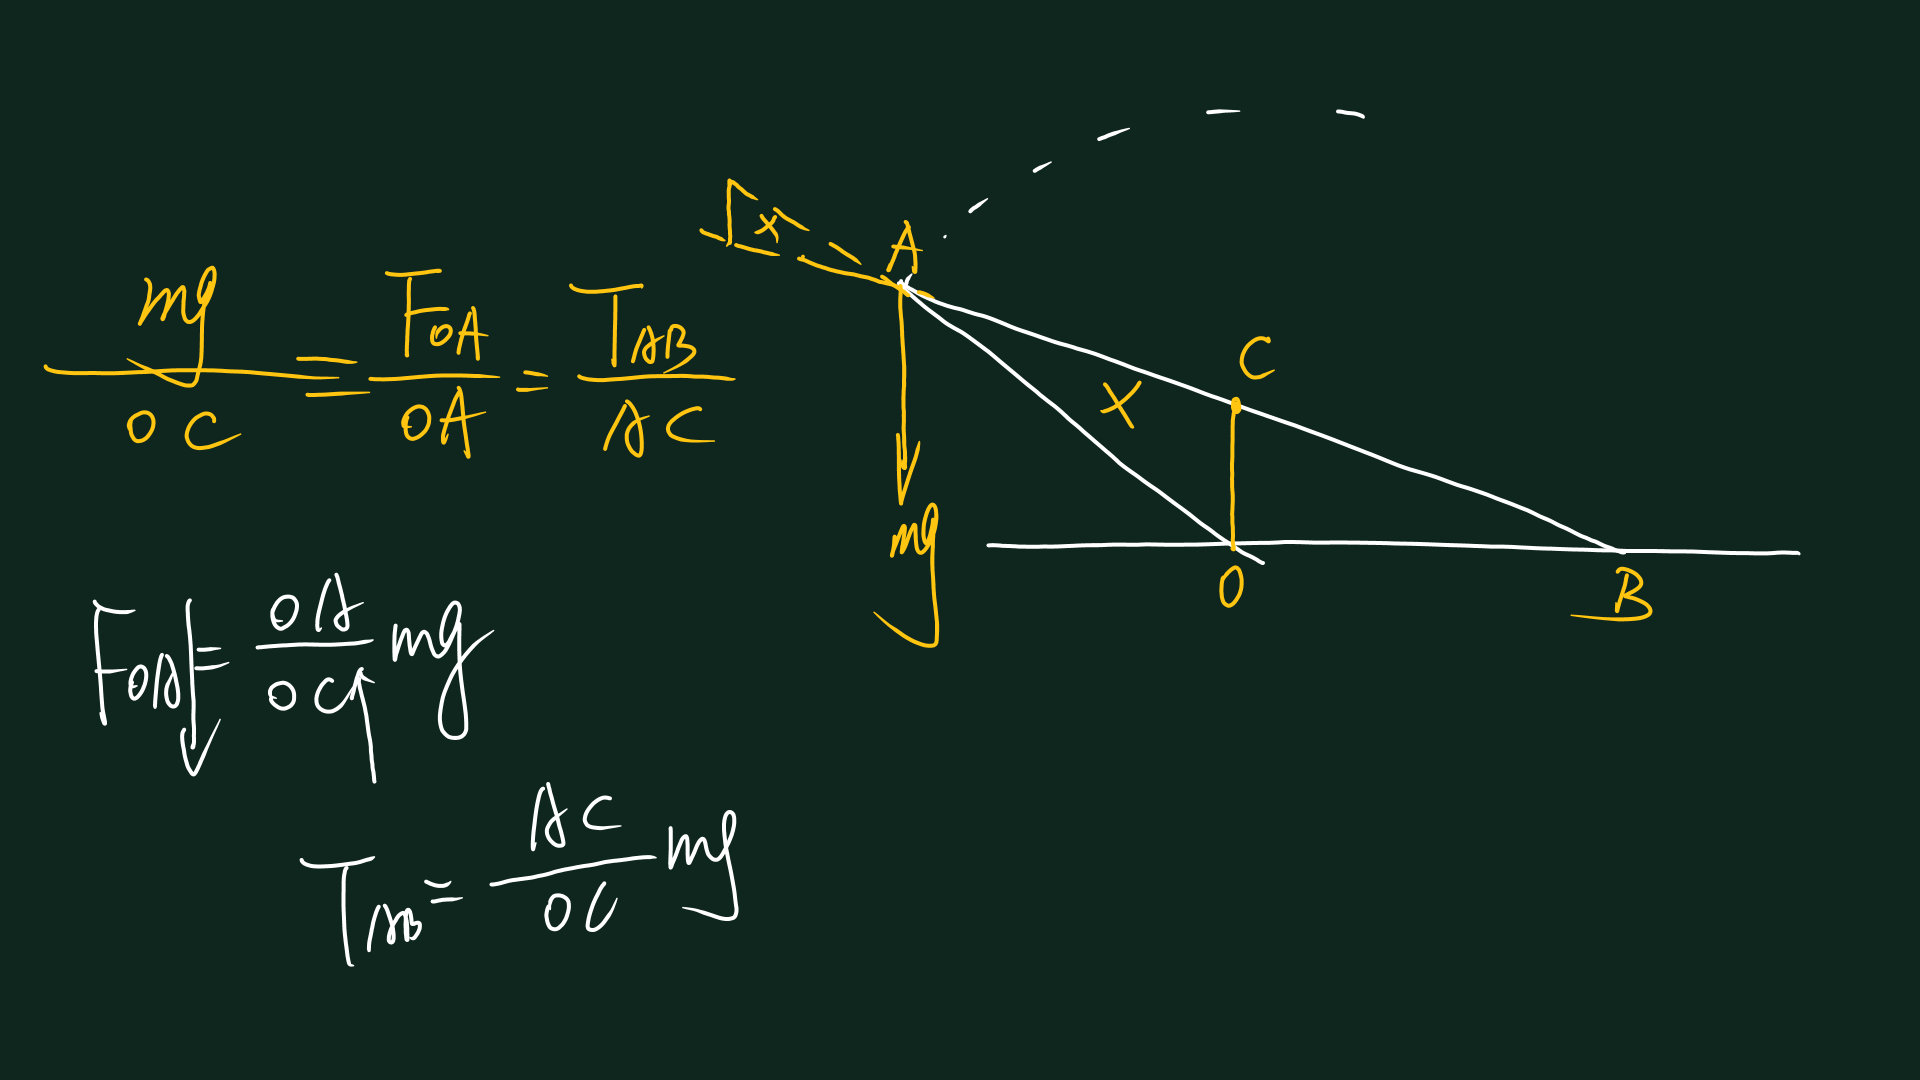 mg/OC = F_OA/OA = T_AB/AC
F_OA ↓ = OA/OC↑ mg
T_AB = AC/OC mg
x
A
C
X
mg
O
B